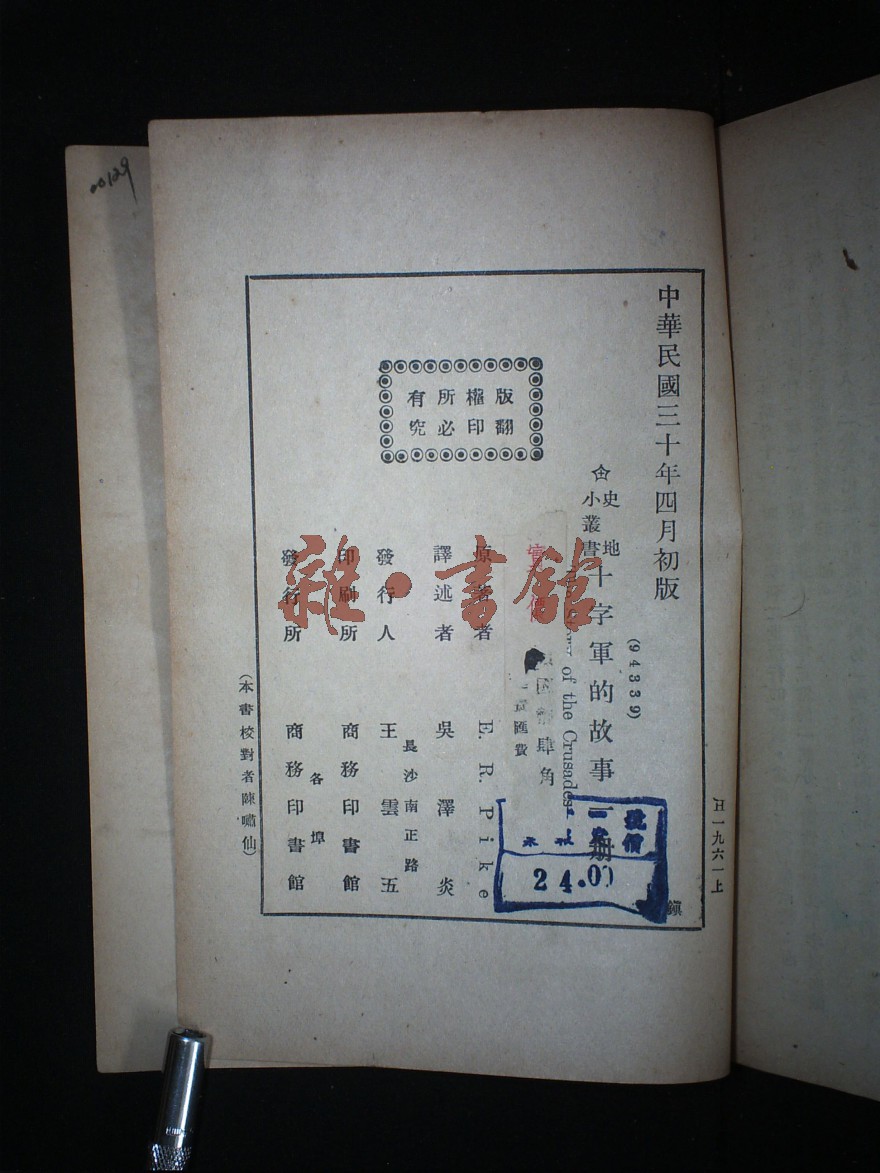 中華民國三十年四月初版
(94339)
史地
小叢書
十字軍的故事一冊
of the Crusades
肆角
匯費
原著者 E. R. Pike
譯述者 吳澤炎
發行人 王雲五
長沙南正路
印刷所 商務印書館
各埠
發行所 商務印書館
(本書校對者陳嘯仙)
版權所有
翻印必究
H一九六一上
鎮
24.00
00129
雜·書館